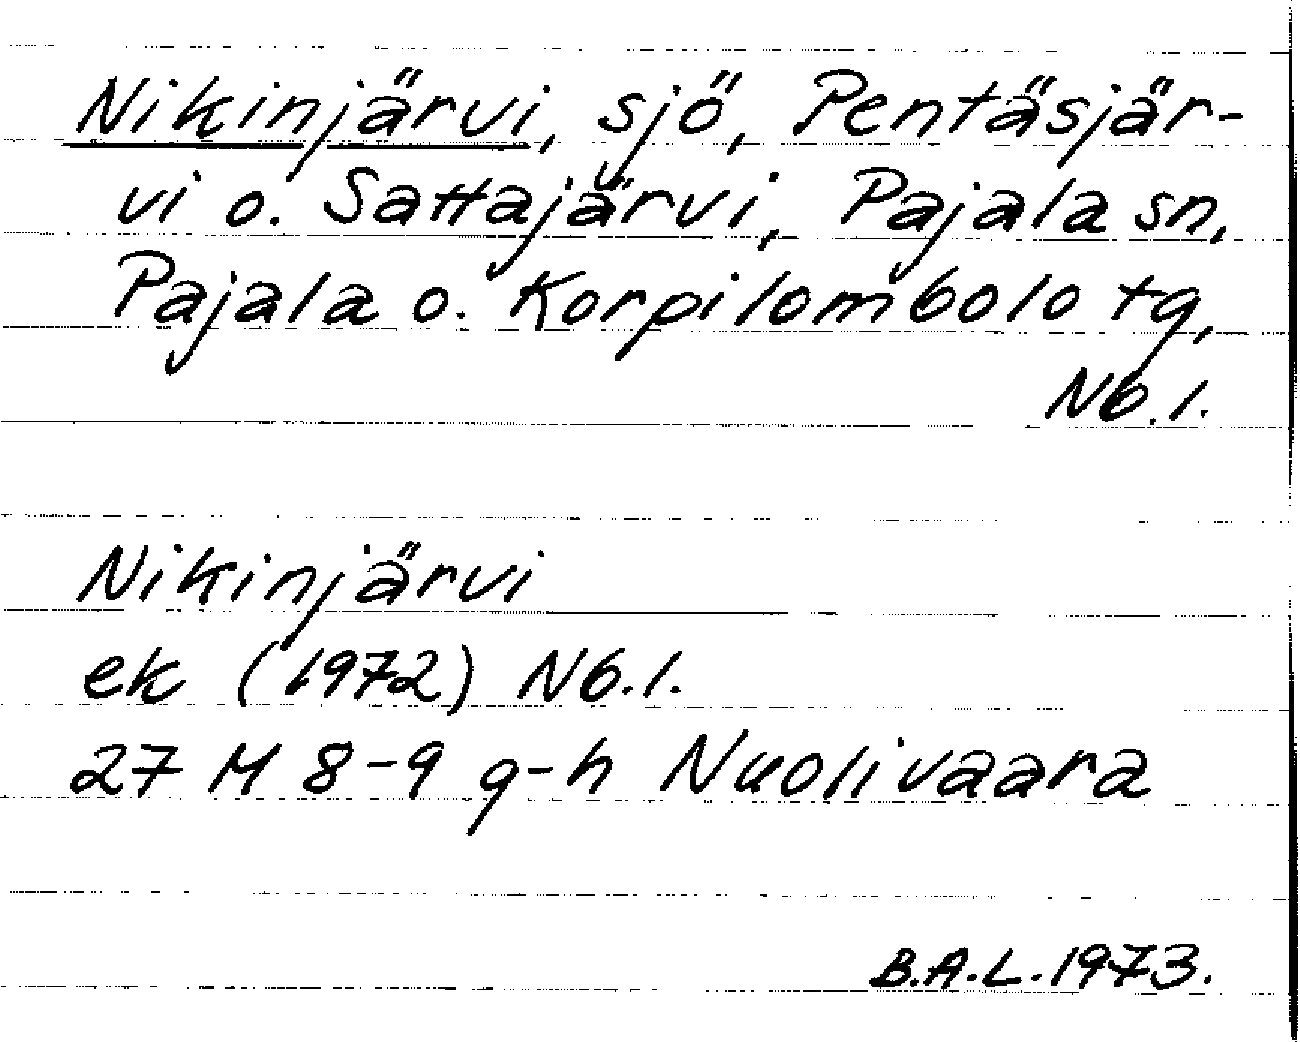 Nikinjärvi, sjö, Pentäsjär-
vi o. Sattajärvi, Pajala sn,
Pajala o. Korpilombolo tg,
Nb.l.
Nikinjärvi
ek (1972) Nb.l.
27 M 8-9 g-h Nuolivaara
B.A.L. 1973.